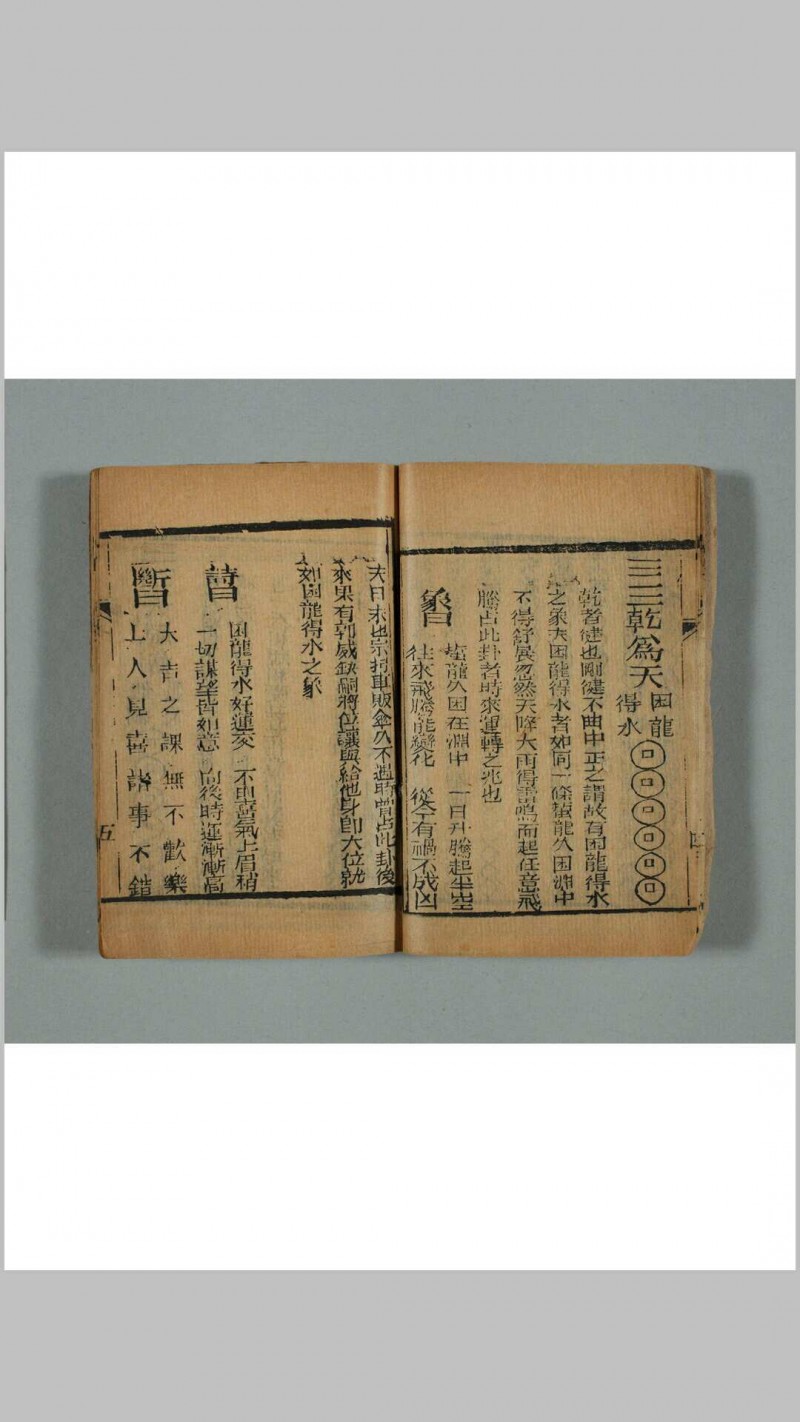 乾為天 困龍得水
乾者健也剛健不曲中正之謂故有困龍得水
之象夫困龍得水者如同一條蟄龍久困淵中
不得舒展忽然天降大雨得雷鳴而起任意飛
騰占此卦者時來運轉之兆也
象曰
蟄龍久困在淵中 一日升騰起半空
往來飛騰能變化 從今有禍不成凶
昔日未也宗推車販傘久不遇時曾占此卦後
來果有郭威缺嗣將位讓與給他身卽大位就
如困龍得水之象
詩曰
困龍得水好運交 不由喜氣上眉稍
一切謀望皆如意 向後時運漸漸高
斷曰
大吉之課無不歡樂
上人見喜諸事不錯
五